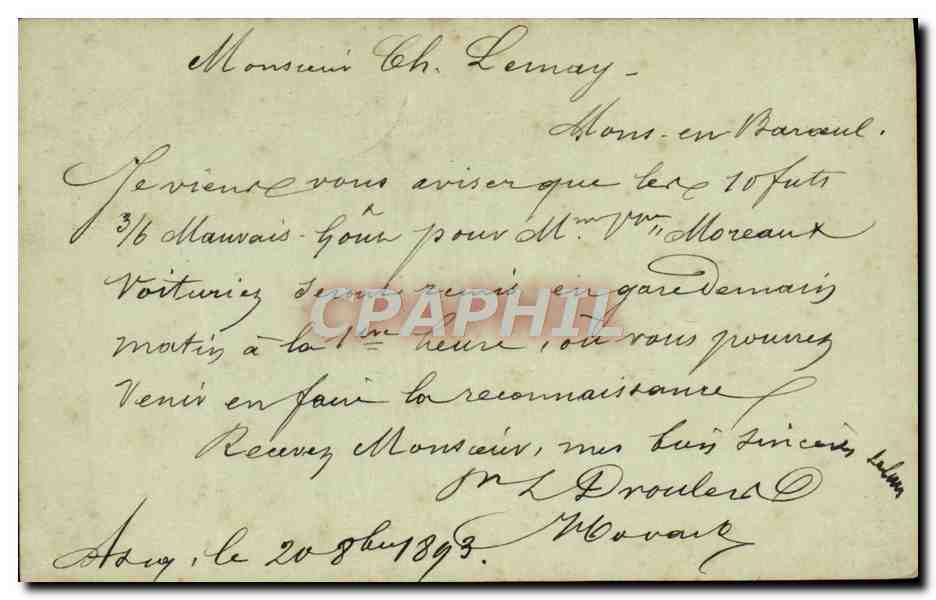 Monsieur Ch. Lemay -
Mons-en Baroeul.
Je viens vous aviser que les 10 futs
3/6 Mauvais-Goût pour Mm. Moreaux
Voituriez seront remis en gare demain
matin à la 1ère heure, où vous pourrez
Venir en faire la reconnaissance
CPAPHIL
Recevez Monsieur, mes bien sincères salut
pr L Droulers
Ascq, le 20 8bre 1893.